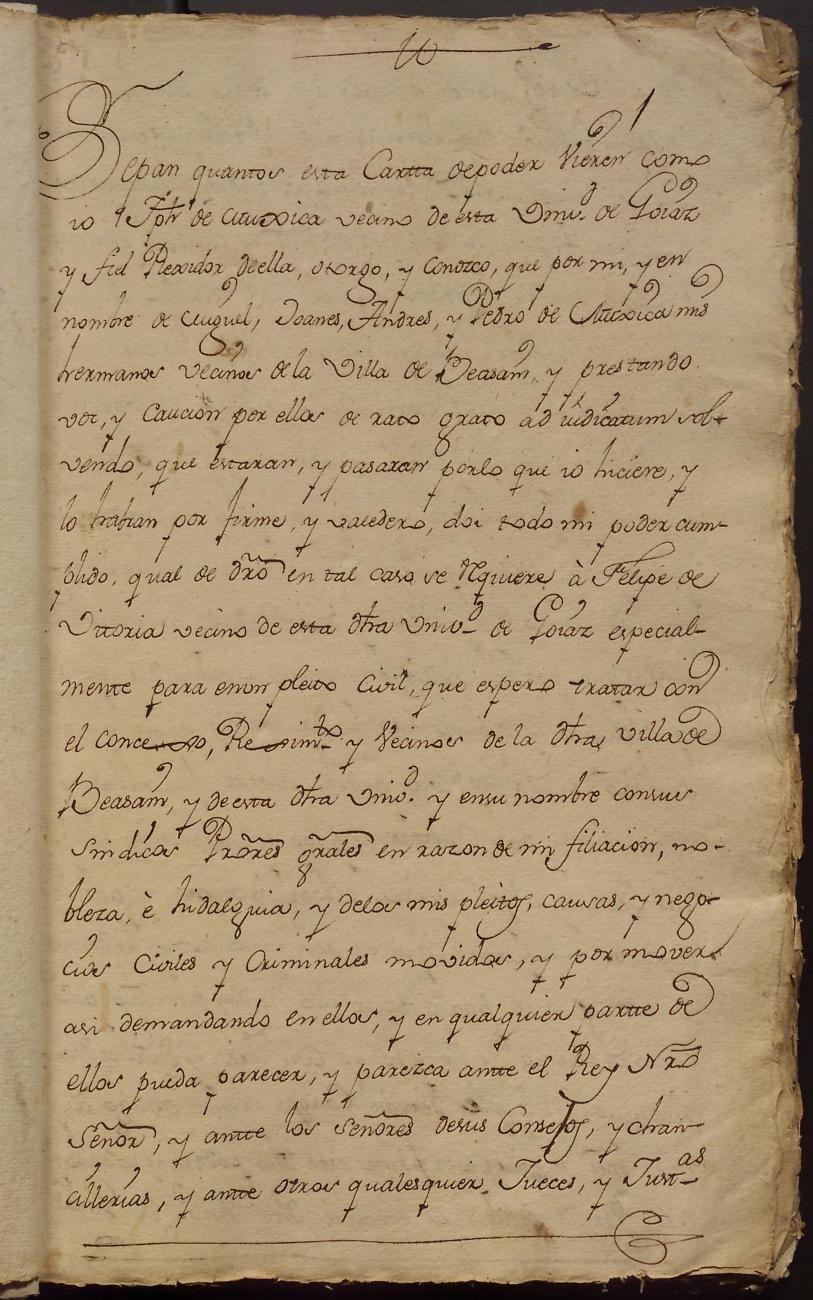 1
Sepan quantos esta Cartta depoder Vieren como
io Jph de Muxica vecino de esta Univ.d de Goiaz
y fiel Rexidor deella, otorgo, y Conozco, que por mi, y en
nombre de Miguel, Joanes, Andres, y Pedro de Muxica mis
hermanos vecinos de la Villa de Beasain, y prestando
voz, y Caucion por ellos de rato grato ad iudicatum sol-
vendo, que estaran, y pasaran porlo que io hiciere, y
lo habran por firme, y valedero, doi todo mi poder cum-
plido, qual de dro en tal caso se requiere à Felipe de
Vitoria vecino de esta dha Univ.d de Goiaz especial-
mente para enun pleito Civil, que espero tratar con
el concexo, Reximto y Vecinos de la dha villa de
Beasain, y de esta dha Univ.d y ensu nombre consus
Sindicos Prores grales en razon de mi filiacion, no-
bleza, è hidalguia, y delos mis pleitos, causas, y nego-
cios Civiles y Criminales movidos, y por mover
asi demandando en ellos, y en qualquier partte de
ellos pueda parecer, y parezca antte el Rey Nro
Señor, y antte los Señores desus Consejos, y chan-
cillerias, y antte otros qualesquier Jueces, y Justas